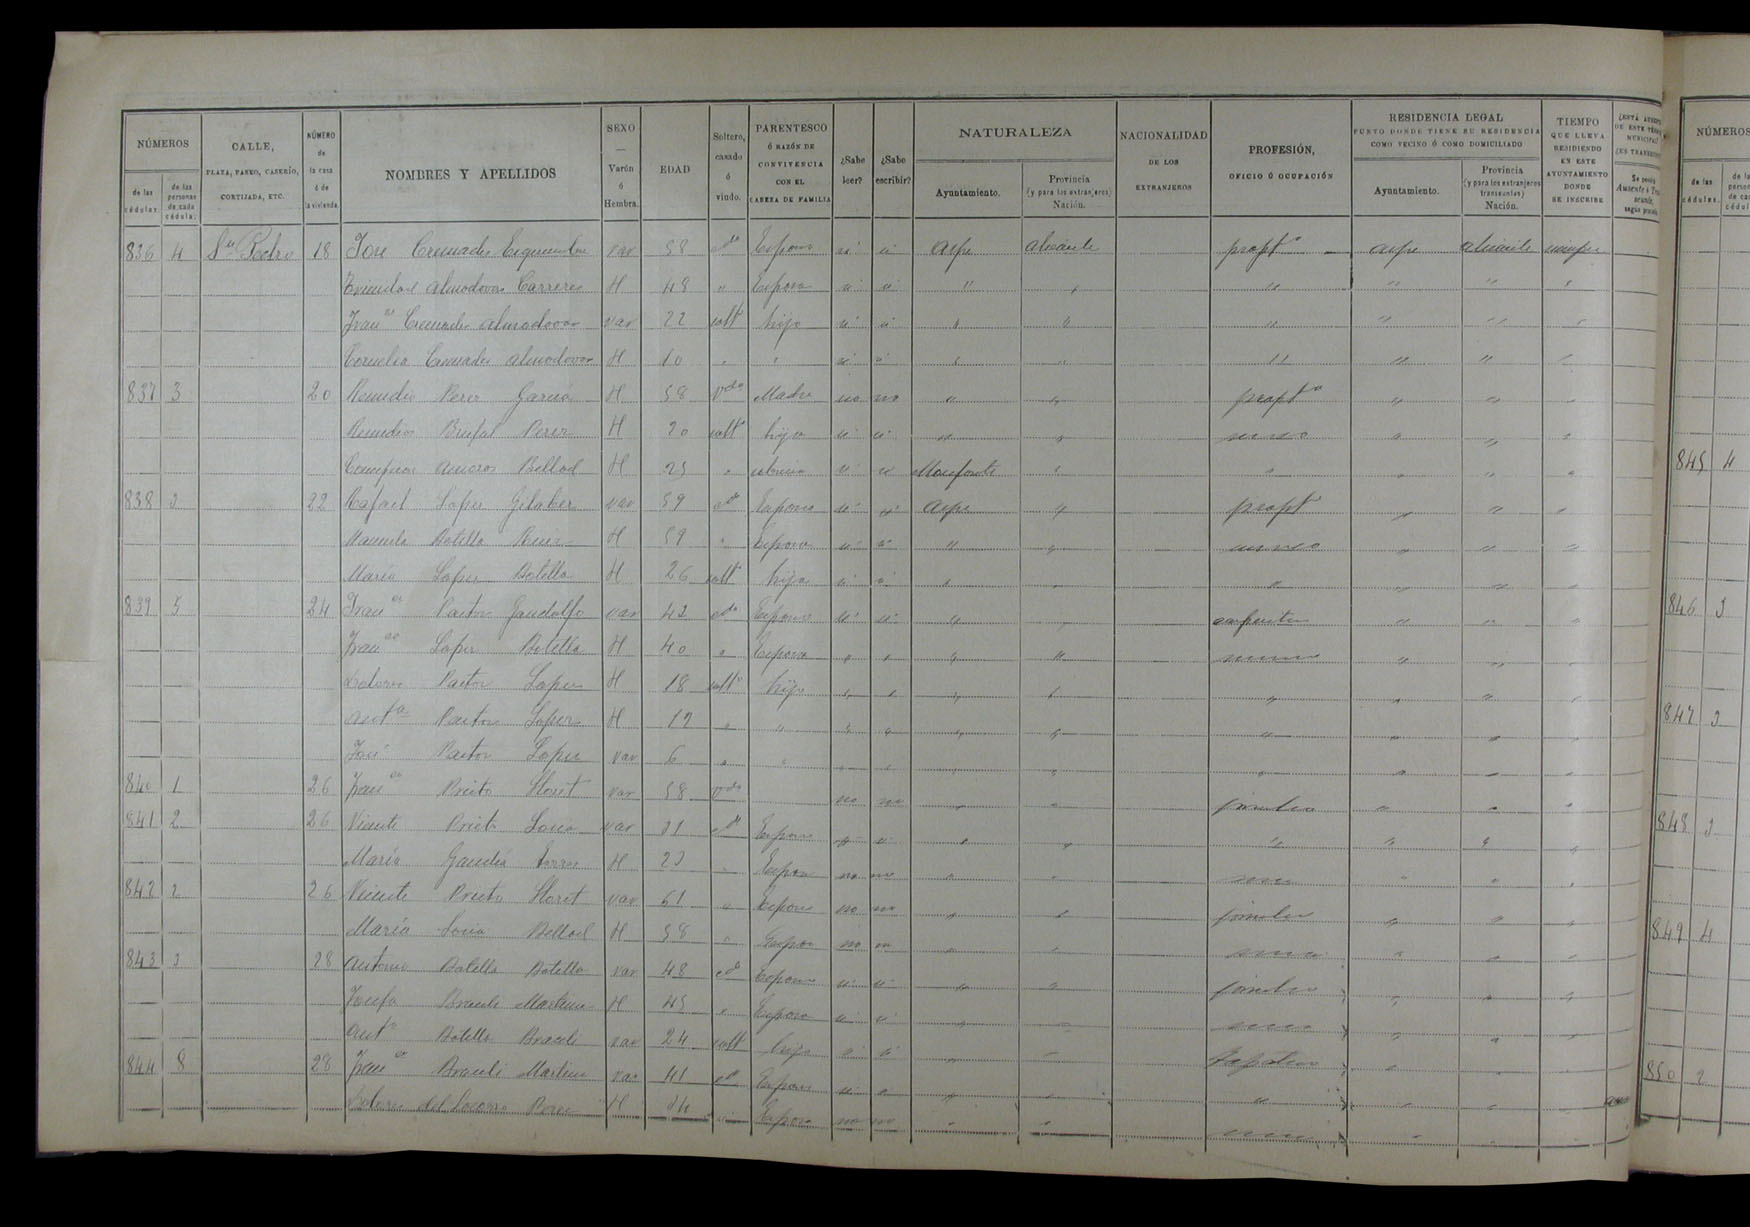 NÚMEROS
de las cédulas.
de las personas de cada cédula.
CALLE,
PLAZA, PASEO, CASERÍO,
CORTIJADA, ETC.
NÚMERO de la casa ó de la vivienda
NOMBRES Y APELLIDOS
SEXO — Varón ó Hembra.
EDAD
Soltero, casado ó viudo.
PARENTESCO
ó RAZÓN DE
CONVIVENCIA
CON EL
CABEZA DE FAMILIA
¿Sabe leer?
¿Sabe escribir?
NATURALEZA
Ayuntamiento.
Provincia
(y para los extranjeros)
Nación.
NACIONALIDAD
DE LOS
EXTRANJEROS
PROFESIÓN,
OFICIO Ú OCUPACIÓN
RESIDENCIA LEGAL
PUNTO DONDE TIENE SU RESIDENCIA
COMO VECINO Ó COMO DOMICILIADO
Ayuntamiento.
Provincia
(y para los extranjeros transeuntes)
Nación.
TIEMPO
QUE LLEVA
RESIDIENDO
EN ESTE
AYUNTAMIENTO
DONDE
SE INSCRIBE
NÚMEROS
836 4 Sn Pedro 18 José Cremades var 58 cdo Esposo si si Aspe Alicante propto Aspe Alicante siempre
Almodovar Carreres H 48 " Esposa si si " " " " " "
Franco Cremades Almodovar var 22 soltº hijo si si " " " " " "
Cornelia Cremades Almodovar H 10 " " si si " " " " " "
837 3 20 Remedio Perez García H 58 Vda Madre no no " " propta " " "
Remedios Brufal Perez H 20 solt hija si si " " su sexo " " "
Concepcion Amoros Bellod H 25 " sobrina si si Monforte " " " " "
838 3 22 Rafael Lopez Gilaber var 59 cdo Esposo si si Aspe " propto " " "
Manuela Botella H 59 " Esposa si si " " su sexo " " "
María Lopez Botella H 26 solt hija si si " " " " " "
839 5 24 Franco Pastor Gandolfo var 42 cdo Esposo si si " " carpintero " " "
Franca Lopez Botella H 40 " Esposa " " " " " " "
Dolores Pastor Lopez H 18 solt hija " " " " " " " "
Anta Pastor Lopez H 12 " " " " " " " " " "
José Pastor Lopez var 6 " " " " " " " " " "
840 1 26 Franco Prieto Lloret var 58 Vdo no no " " " " "
841 2 26 Vicente Prieto Soria var 31 cdo Esposo si si " " " " " "
María Gandía Torres H 23 " Esposa no no " " " " "
842 2 26 Vicente Prieto Lloret var 61 " Esposo no no " " " " "
María Soria Bellod H 58 " Esposa no no " " " " "
843 3 28 Antonio Botella Botella var 48 cdo Esposo si si " " " " "
Josefa Martinez H 45 " Esposa si si " " " " "
Anto Botella var 24 solt hijo si si " " " " "
844 8 28 Franco Martinez var 41 cdo Esposo si si " " " " " "
Dolores del Socorro Perez H 34 " Esposa no no " " " "
845 4
846 3
847 3
848 3
849 4
850 2